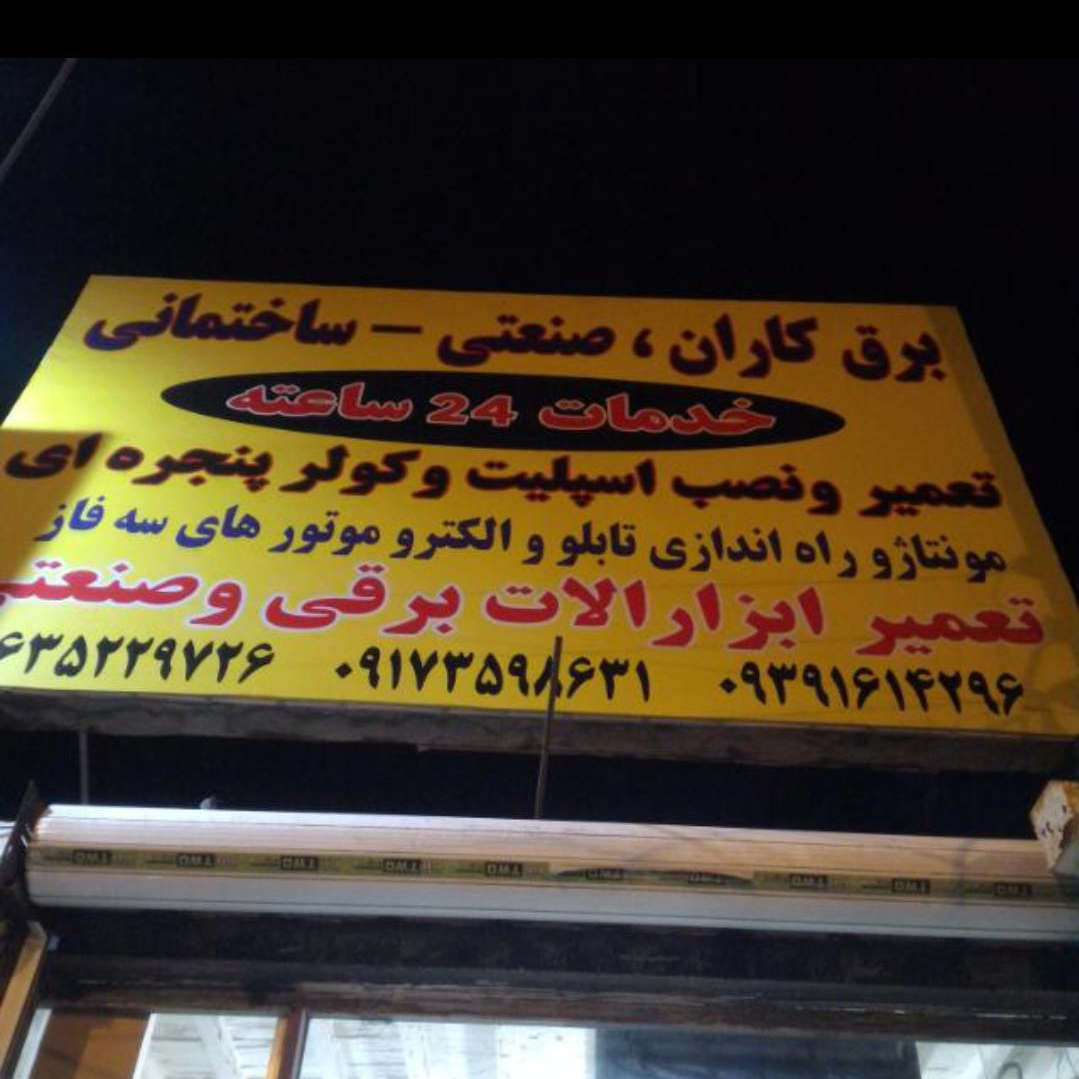 برق کاران ، صنعتی – ساختمانی
خدمات 24 ساعته
تعمیر ونصب اسپلیت وکولر پنجره ای
مونتاژو راه اندازی تابلو و الکترو موتور های سه فاز
تعمیر ابزارالات برقی وصنعتی
۰۹۳۹۱۶۱۴۲۹۶ ۰۹۱۷۳۵۹۸۶۳۱ ۶۳۵۲۲۹۷۲۶
TWO TWO TWO TWO TWO TWO TWO TWO TWO